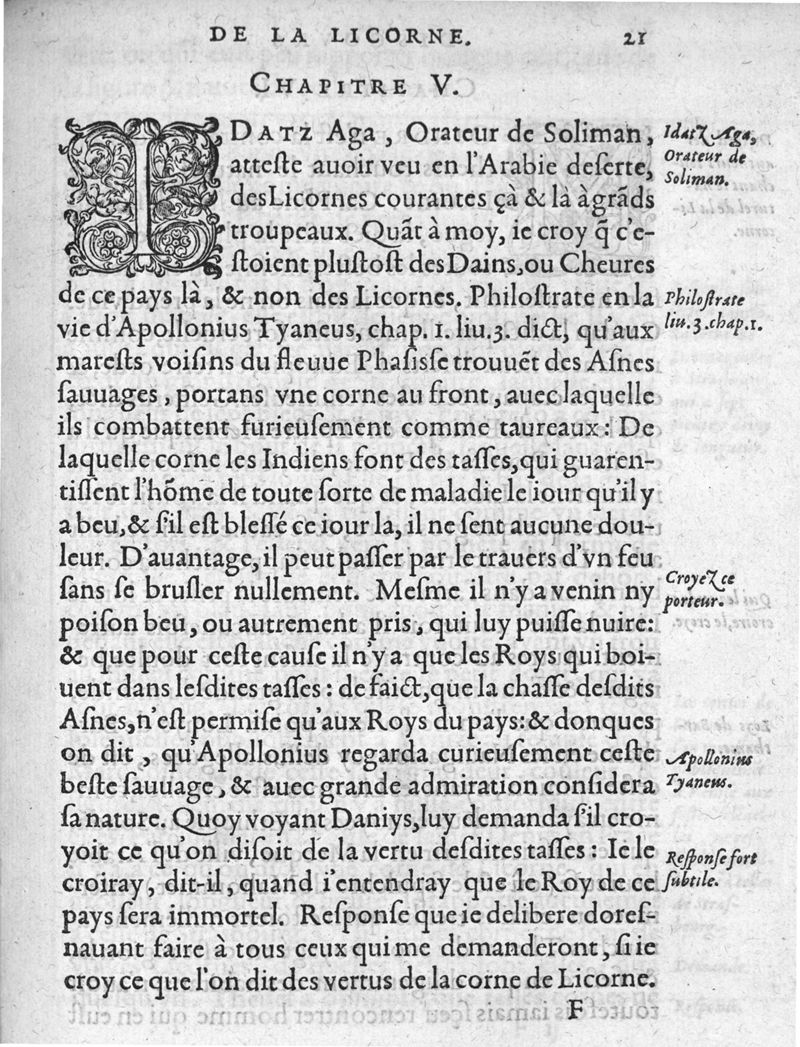 DE LA LICORNE. 21
CHAPITRE V.
IDATZ Aga, Orateur de Soliman,
atteſte auoir veu en l'Arabie deſerte,
des Licornes courantes çà & là à grãds
troupeaux. Quãt à moy, ie croy q̃ c'e-
ſtoient pluſtoſt des Dains, ou Cheures
de ce pays là, & non des Licornes. Philoſtrate en la
vie d'Apollonius Tyaneus, chap. 1. liu. 3. dict, qu'aux
mareſts voiſins du fleuue Phaſis ſe trouuẽt des Aſnes
ſauuages, portans vne corne au front, auec laquelle
ils combattent furieuſement comme taureaux: De
laquelle corne les Indiens font des taſſes, qui guaren-
tiſſent l'hõme de toute ſorte de maladie le iour qu'il y
a beu, & ſ'il eſt bleſſé ce iour la, il ne ſent aucune dou-
leur. D'auantage, il peut paſſer par le trauers d'vn feu
ſans ſe bruſler nullement. Meſme il n'y a venin ny
poiſon beu, ou autrement pris, qui luy puiſſe nuire:
& que pour ceſte cauſe il n'y a que les Roys qui boi-
uent dans leſdites taſſes: de faict, que la chaſſe deſdits
Aſnes, n'eſt permiſe qu'aux Roys du pays: & donques
on dit, qu'Apollonius regarda curieuſement ceſte
beſte ſauuage, & auec grande admiration conſidera
ſa nature. Quoy voyant Daniys, luy demanda ſ'il cro-
yoit ce qu'on diſoit de la vertu deſdites taſſes: Ie le
croiray, dit-il, quand i'entendray que le Roy de ce
pays ſera immortel. Reſponſe que ie delibere doreſ-
nauant faire à tous ceux qui me demanderont, ſi ie
croy ce que l'on dit des vertus de la corne de Licorne.
F
Idatz Aga,
Orateur de
Soliman.
Philoſtrate
liu. 3. chap. 1.
Croyez ce
porteur.
Apollonius
Tyaneus.
Reſponſe fort
ſubtile.